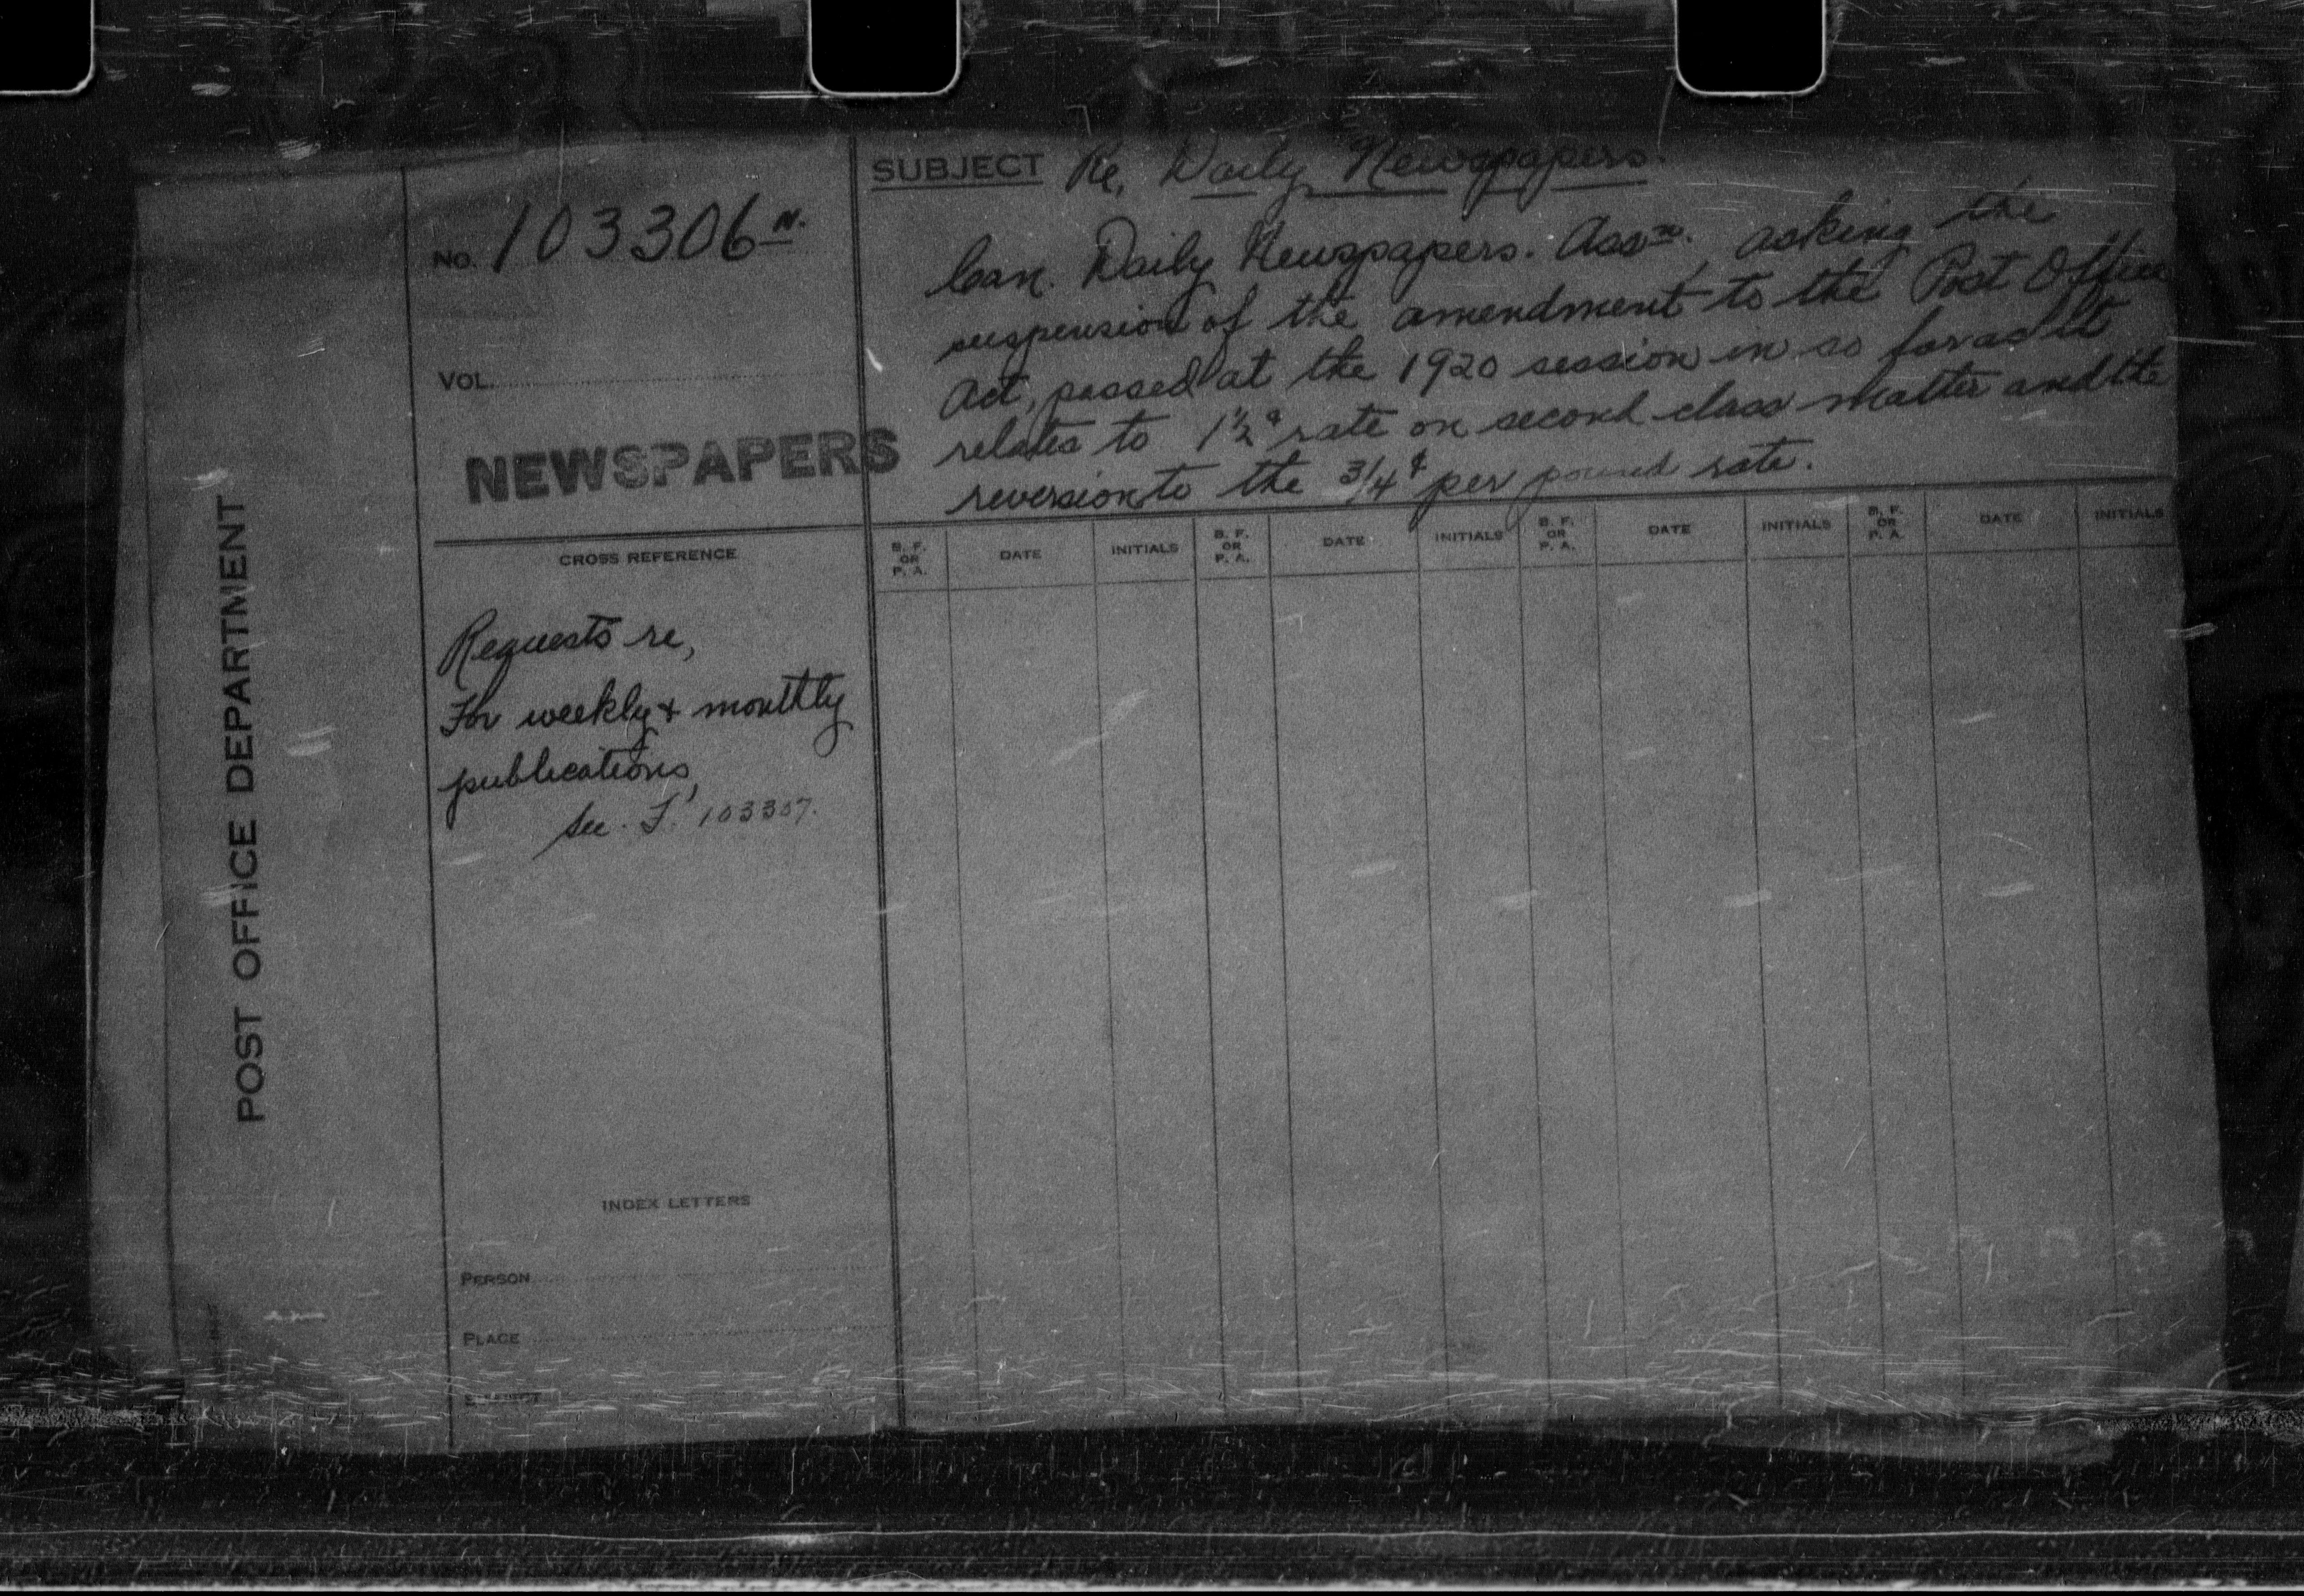 POST OFFICE DEPARTMENT
No. 103306 N.
VOL.
NEWSPAPERS
SUBJECT Re, Daily Newspapers.
Can. Daily Newspapers. Assn. asking the
suspension of the amendment to the Post Office
Act, passed at the 1920 session in so far as it
relates to 1½¢ rate on second class matter and the
reversion to the 3/4¢ per pound rate.
CROSS REFERENCE
Requests re,
For weekly & monthly
publications,
See. F. 103307.
INDEX LETTERS
PERSON
PLACE
SUBJECT
B. F. OR P. A. DATE INITIALS B. F. OR P. A. DATE INITIALS B. F. OR P. A. DATE INITIALS B. F. OR P. A. DATE INITIALS